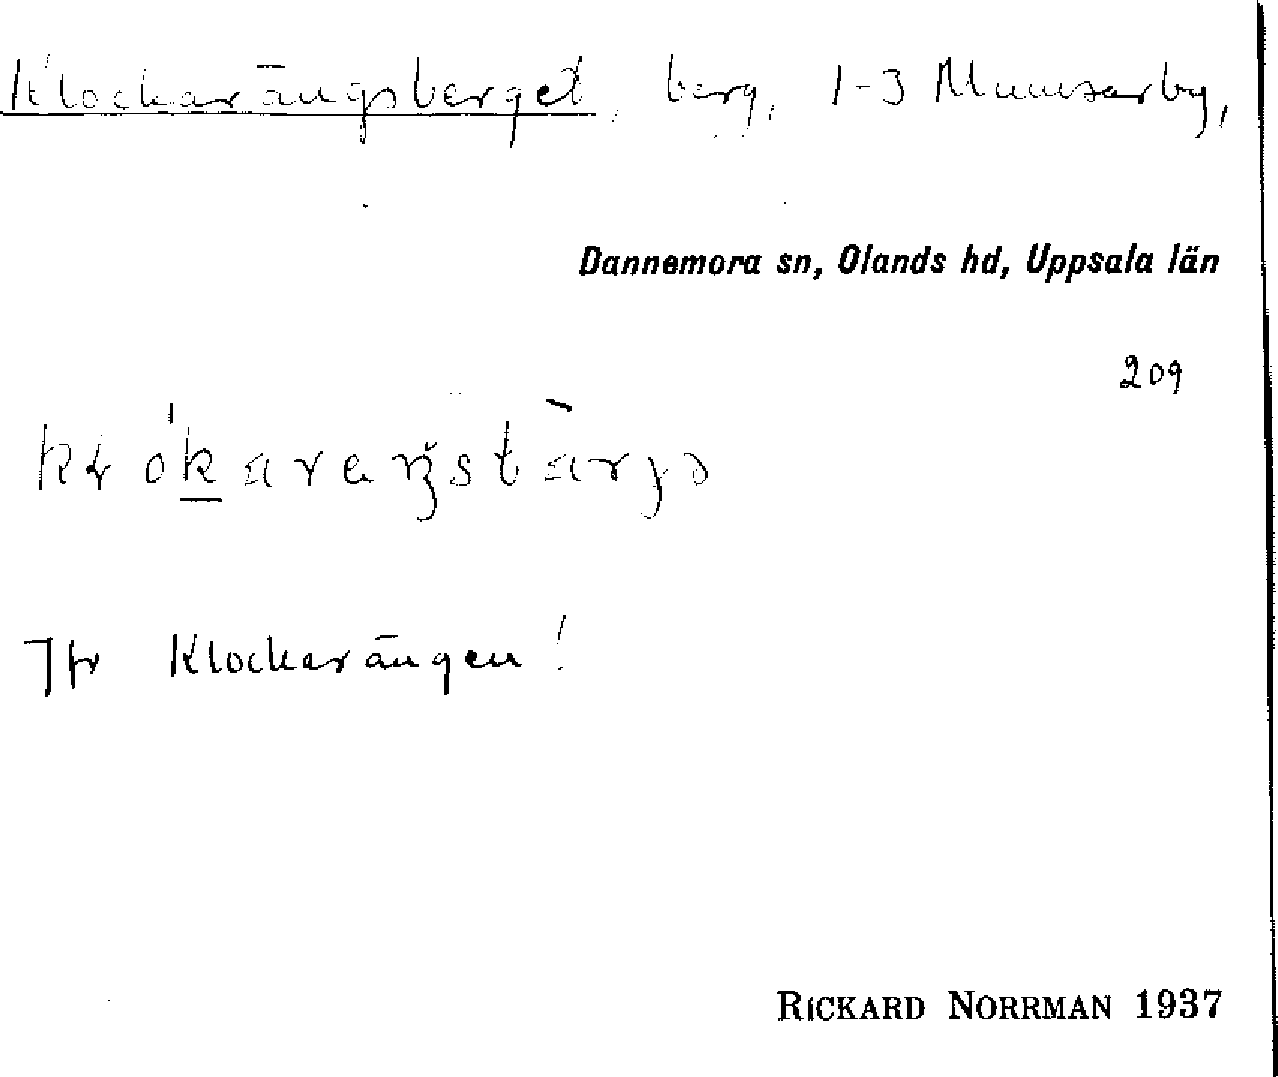 Klockarängsberget, berg, 1-3 Mumsarby,
Dannemora sn, Olands hd, Uppsala län
209
Jfr Klockarängen!
RICKARD NORRMAN 1937